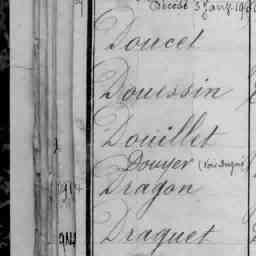 Décédé 3 Janv. 19
Doucet
Douessin
Douillet
Douyer (Voir
Dragon
Draguet